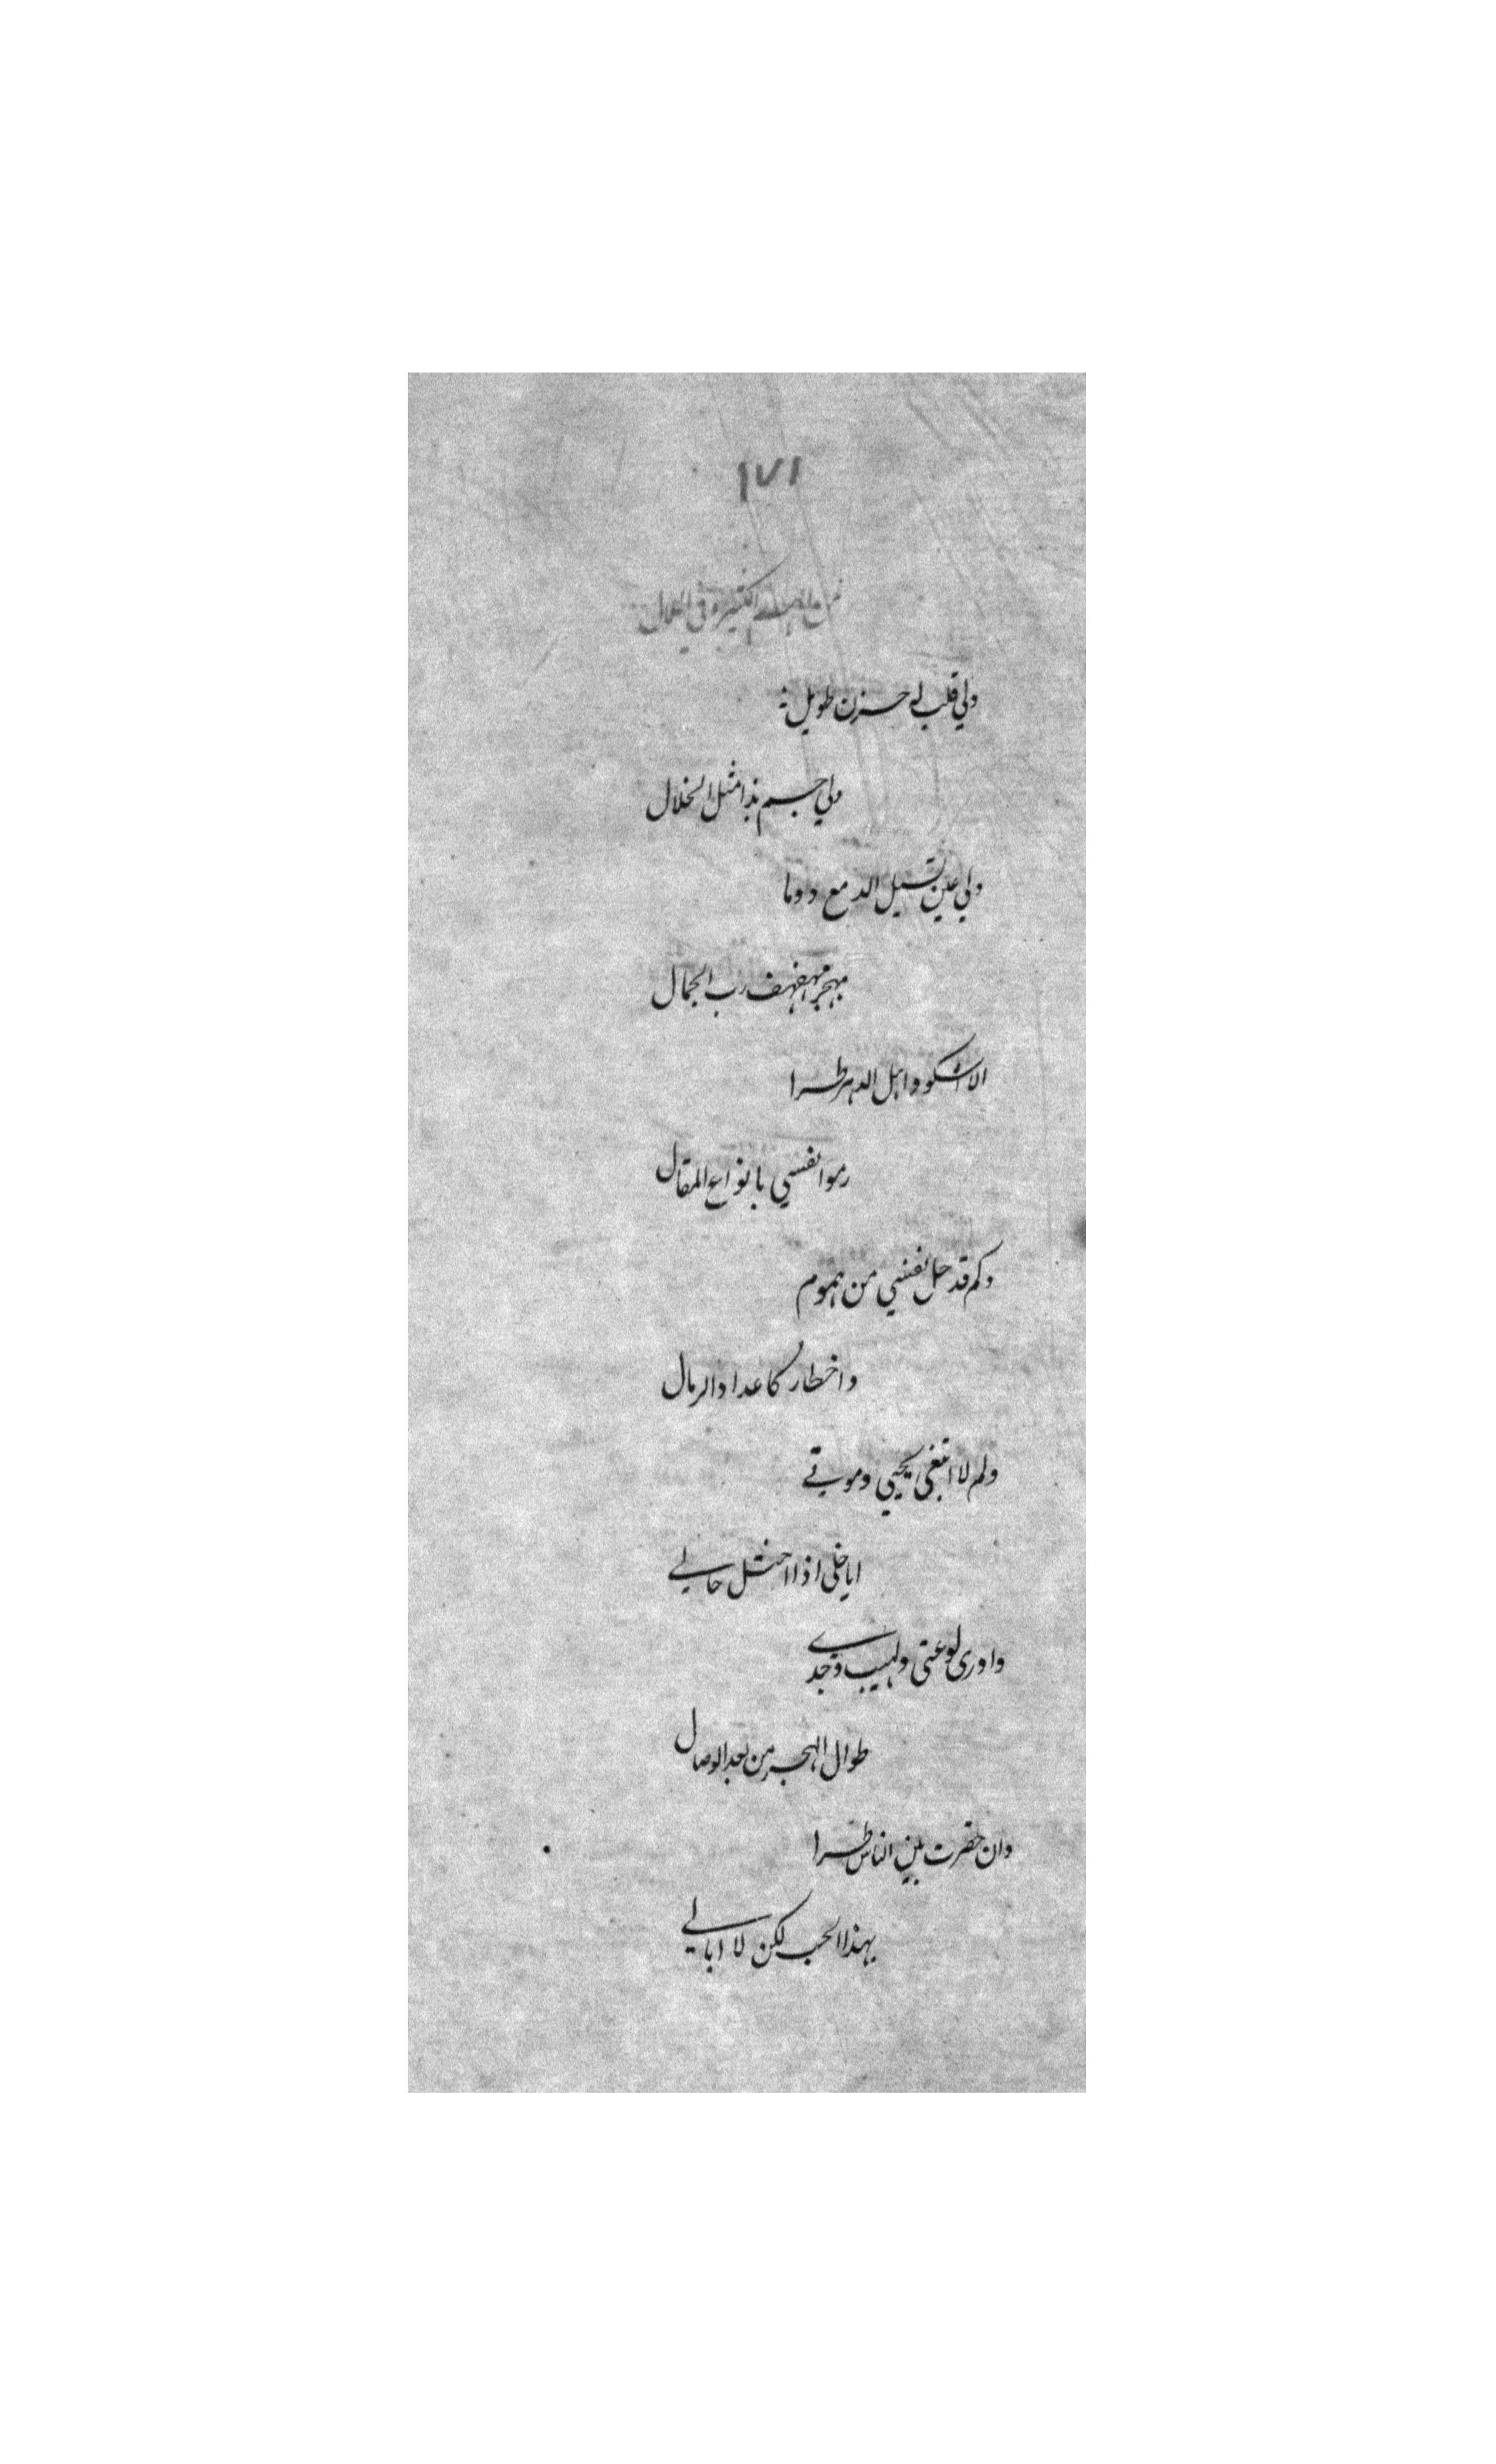 ١٧١
في
ولي قلب له حزن طويل
ولي جسم بذا مثل الخلال
ولي عين تسيل الدمع دوما
بهجر مهفهف رب الجمال
الا اشكو واهل الدهر طرا
رموا نفسي بانواع المقال
وكم قد حل نفسي من هموم
واخطار كاعداد الرمال
ولم لا ابتغى يحيى وموتي
اياخلى اذا اختل حالي
واورى لوعتى ولهيب وجدي
طوال الهجر من بعد الوصال
وان حضرت بين الناس طرا
بهذا الحب لكن لا ابالي